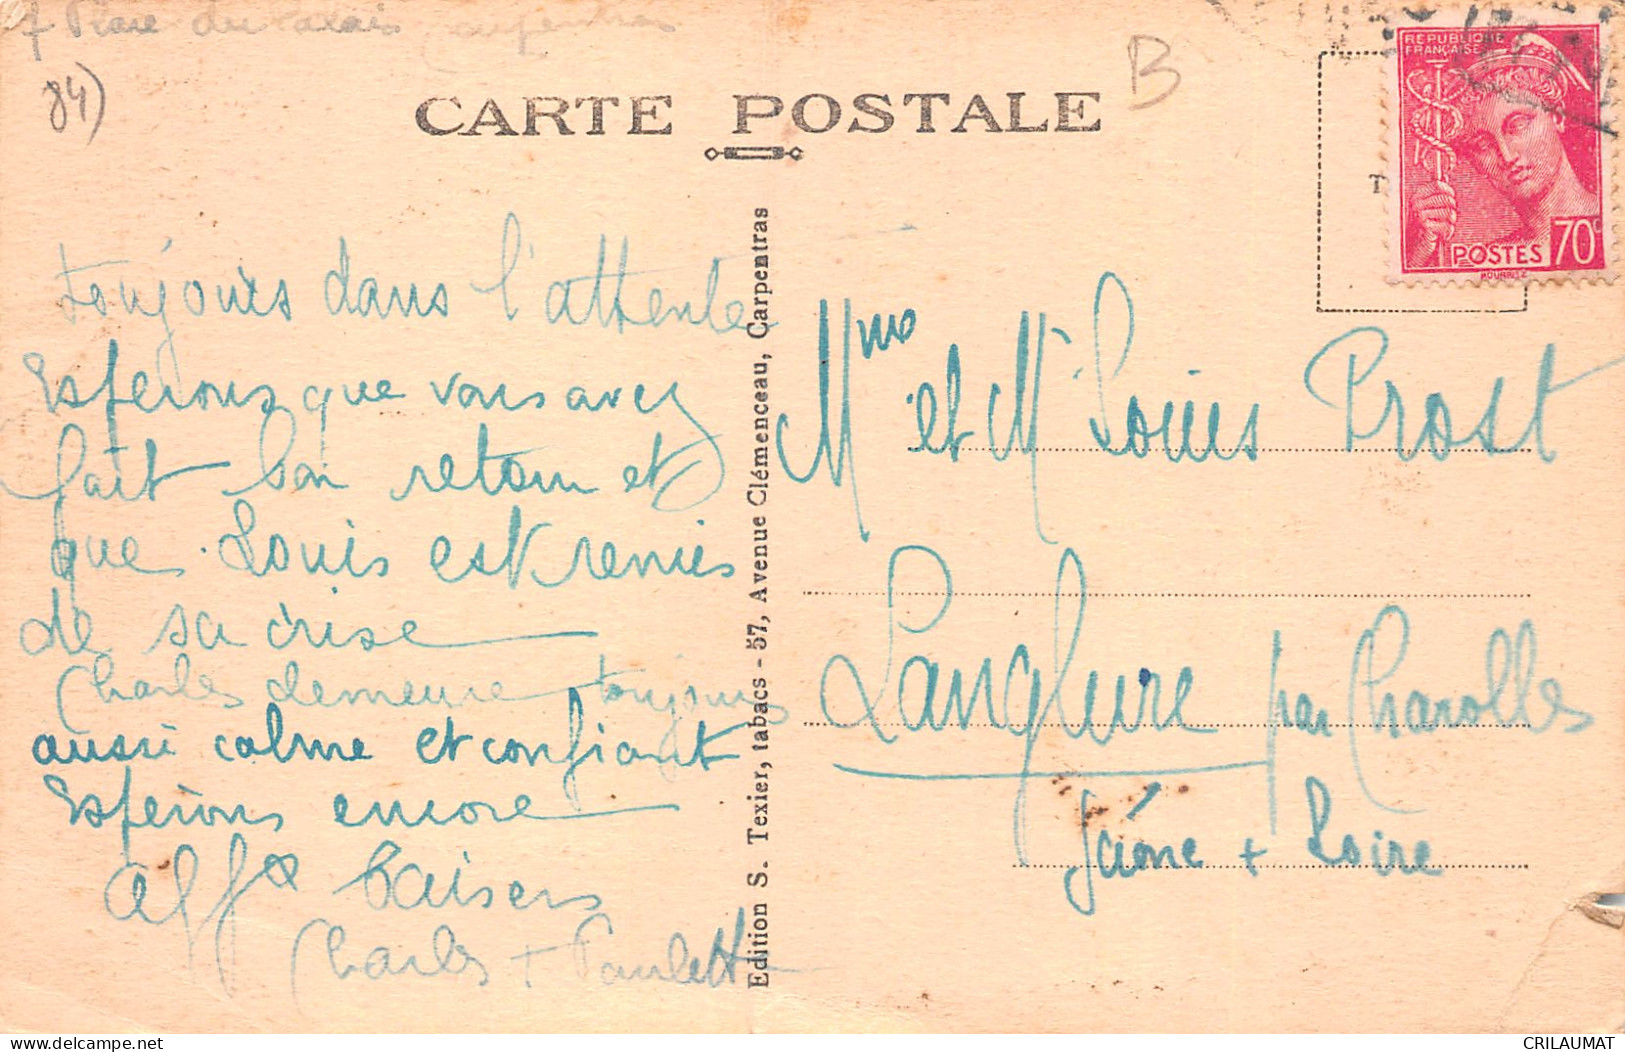 7 Place du Palais Carpentras
84)
B
CARTE POSTALE
REPUBLIQUE
FRANÇAISE
POSTES 70c
toujours dans l'attente
Esperons que vous avez
fait bon retour et
que Louis est remis
de sa crise
Charles demeure toujours
aussi calme et confiant
Esperons encore
aff x baisers
Charles + Paulette
Edition S. Texier, tabacs - 57, Avenue Clémenceau, Carpentras
Mme et Mr Louis Prost
Langlure par Charolles
Saône + Loire
CRILAUMAT